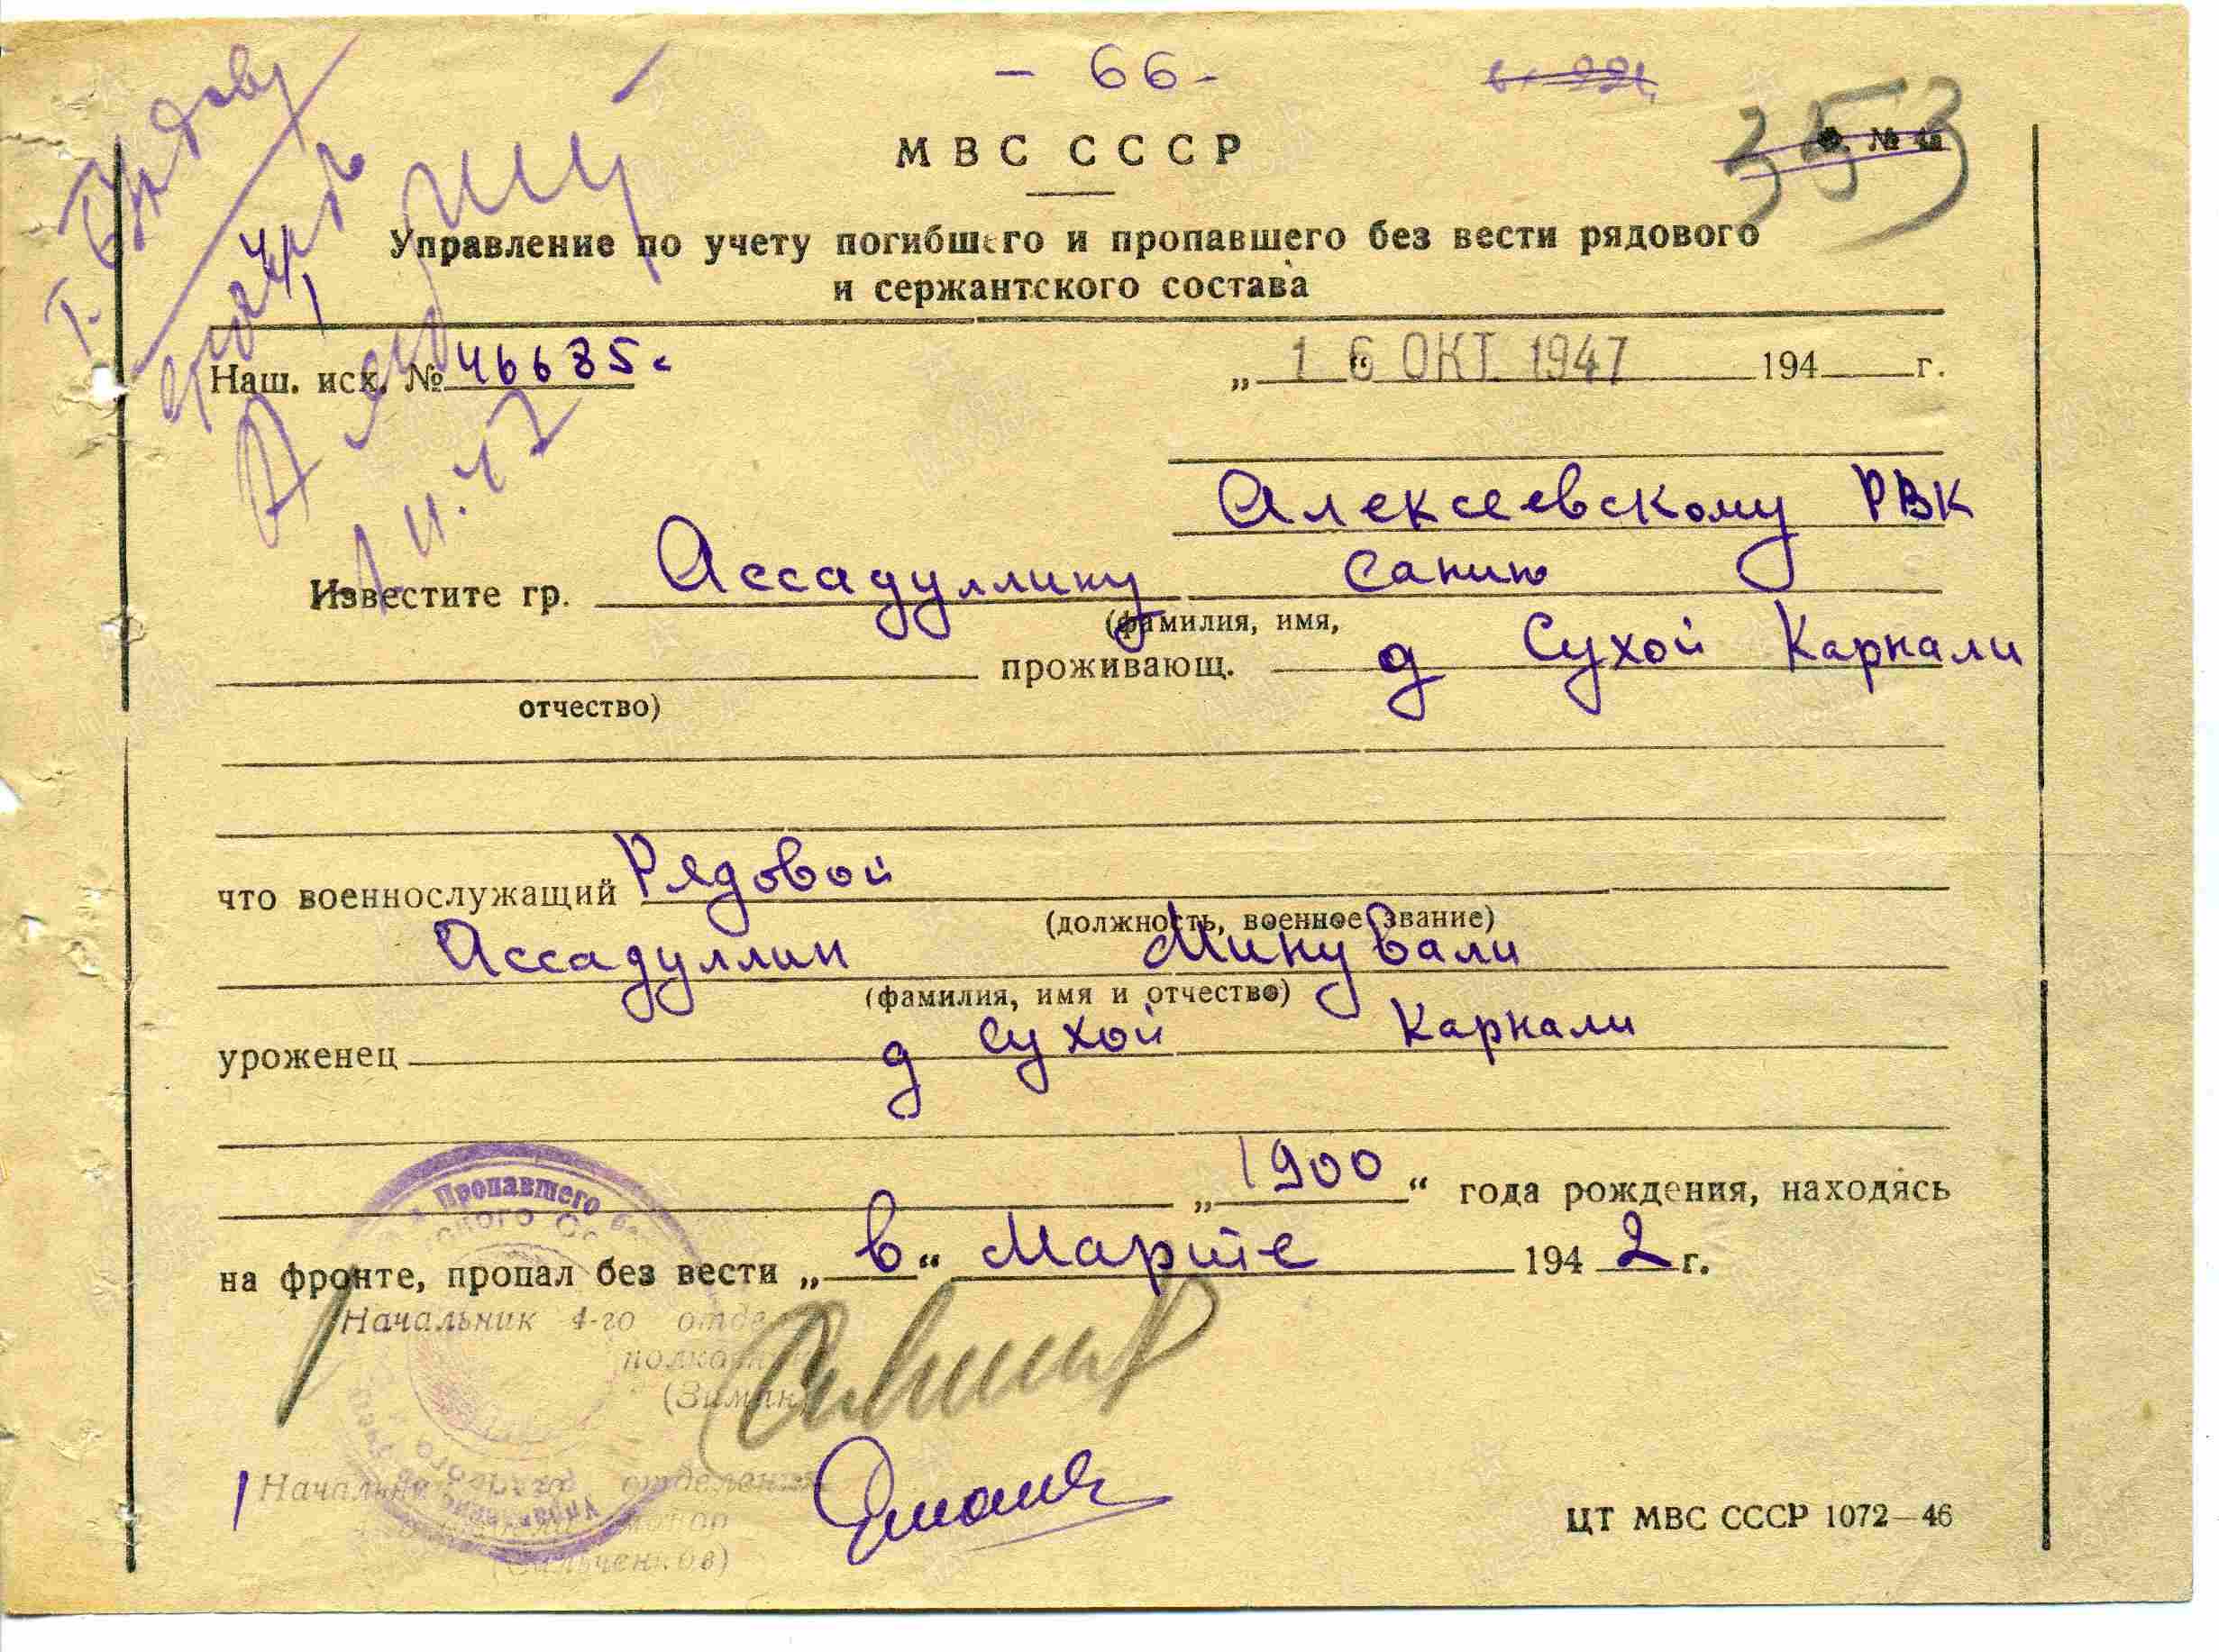 - 66 -
353
МВС СССР
Управление по учету погибшего и пропавшего без вести рядового
и сержантского состава
Наш. исх. № 46685с
„16“ ОКТ 1947 194 г.
Алексеевскому РВК
Известите гр. Ассадуллину Санию
(фамилия, имя,
проживающ. д Сухой Карнали
отчество)
что военнослужащий Рядовой
(должность, военное звание)
Ассадуллин Минували
(фамилия, имя и отчество)
уроженец д Сухой Карнали
„1900“ года рождения, находясь
на фронте, пропал без вести „в“ Марте 1942 г.
Начальник 4-го
Начальник отделения
ЦТ МВС СССР 1072—46